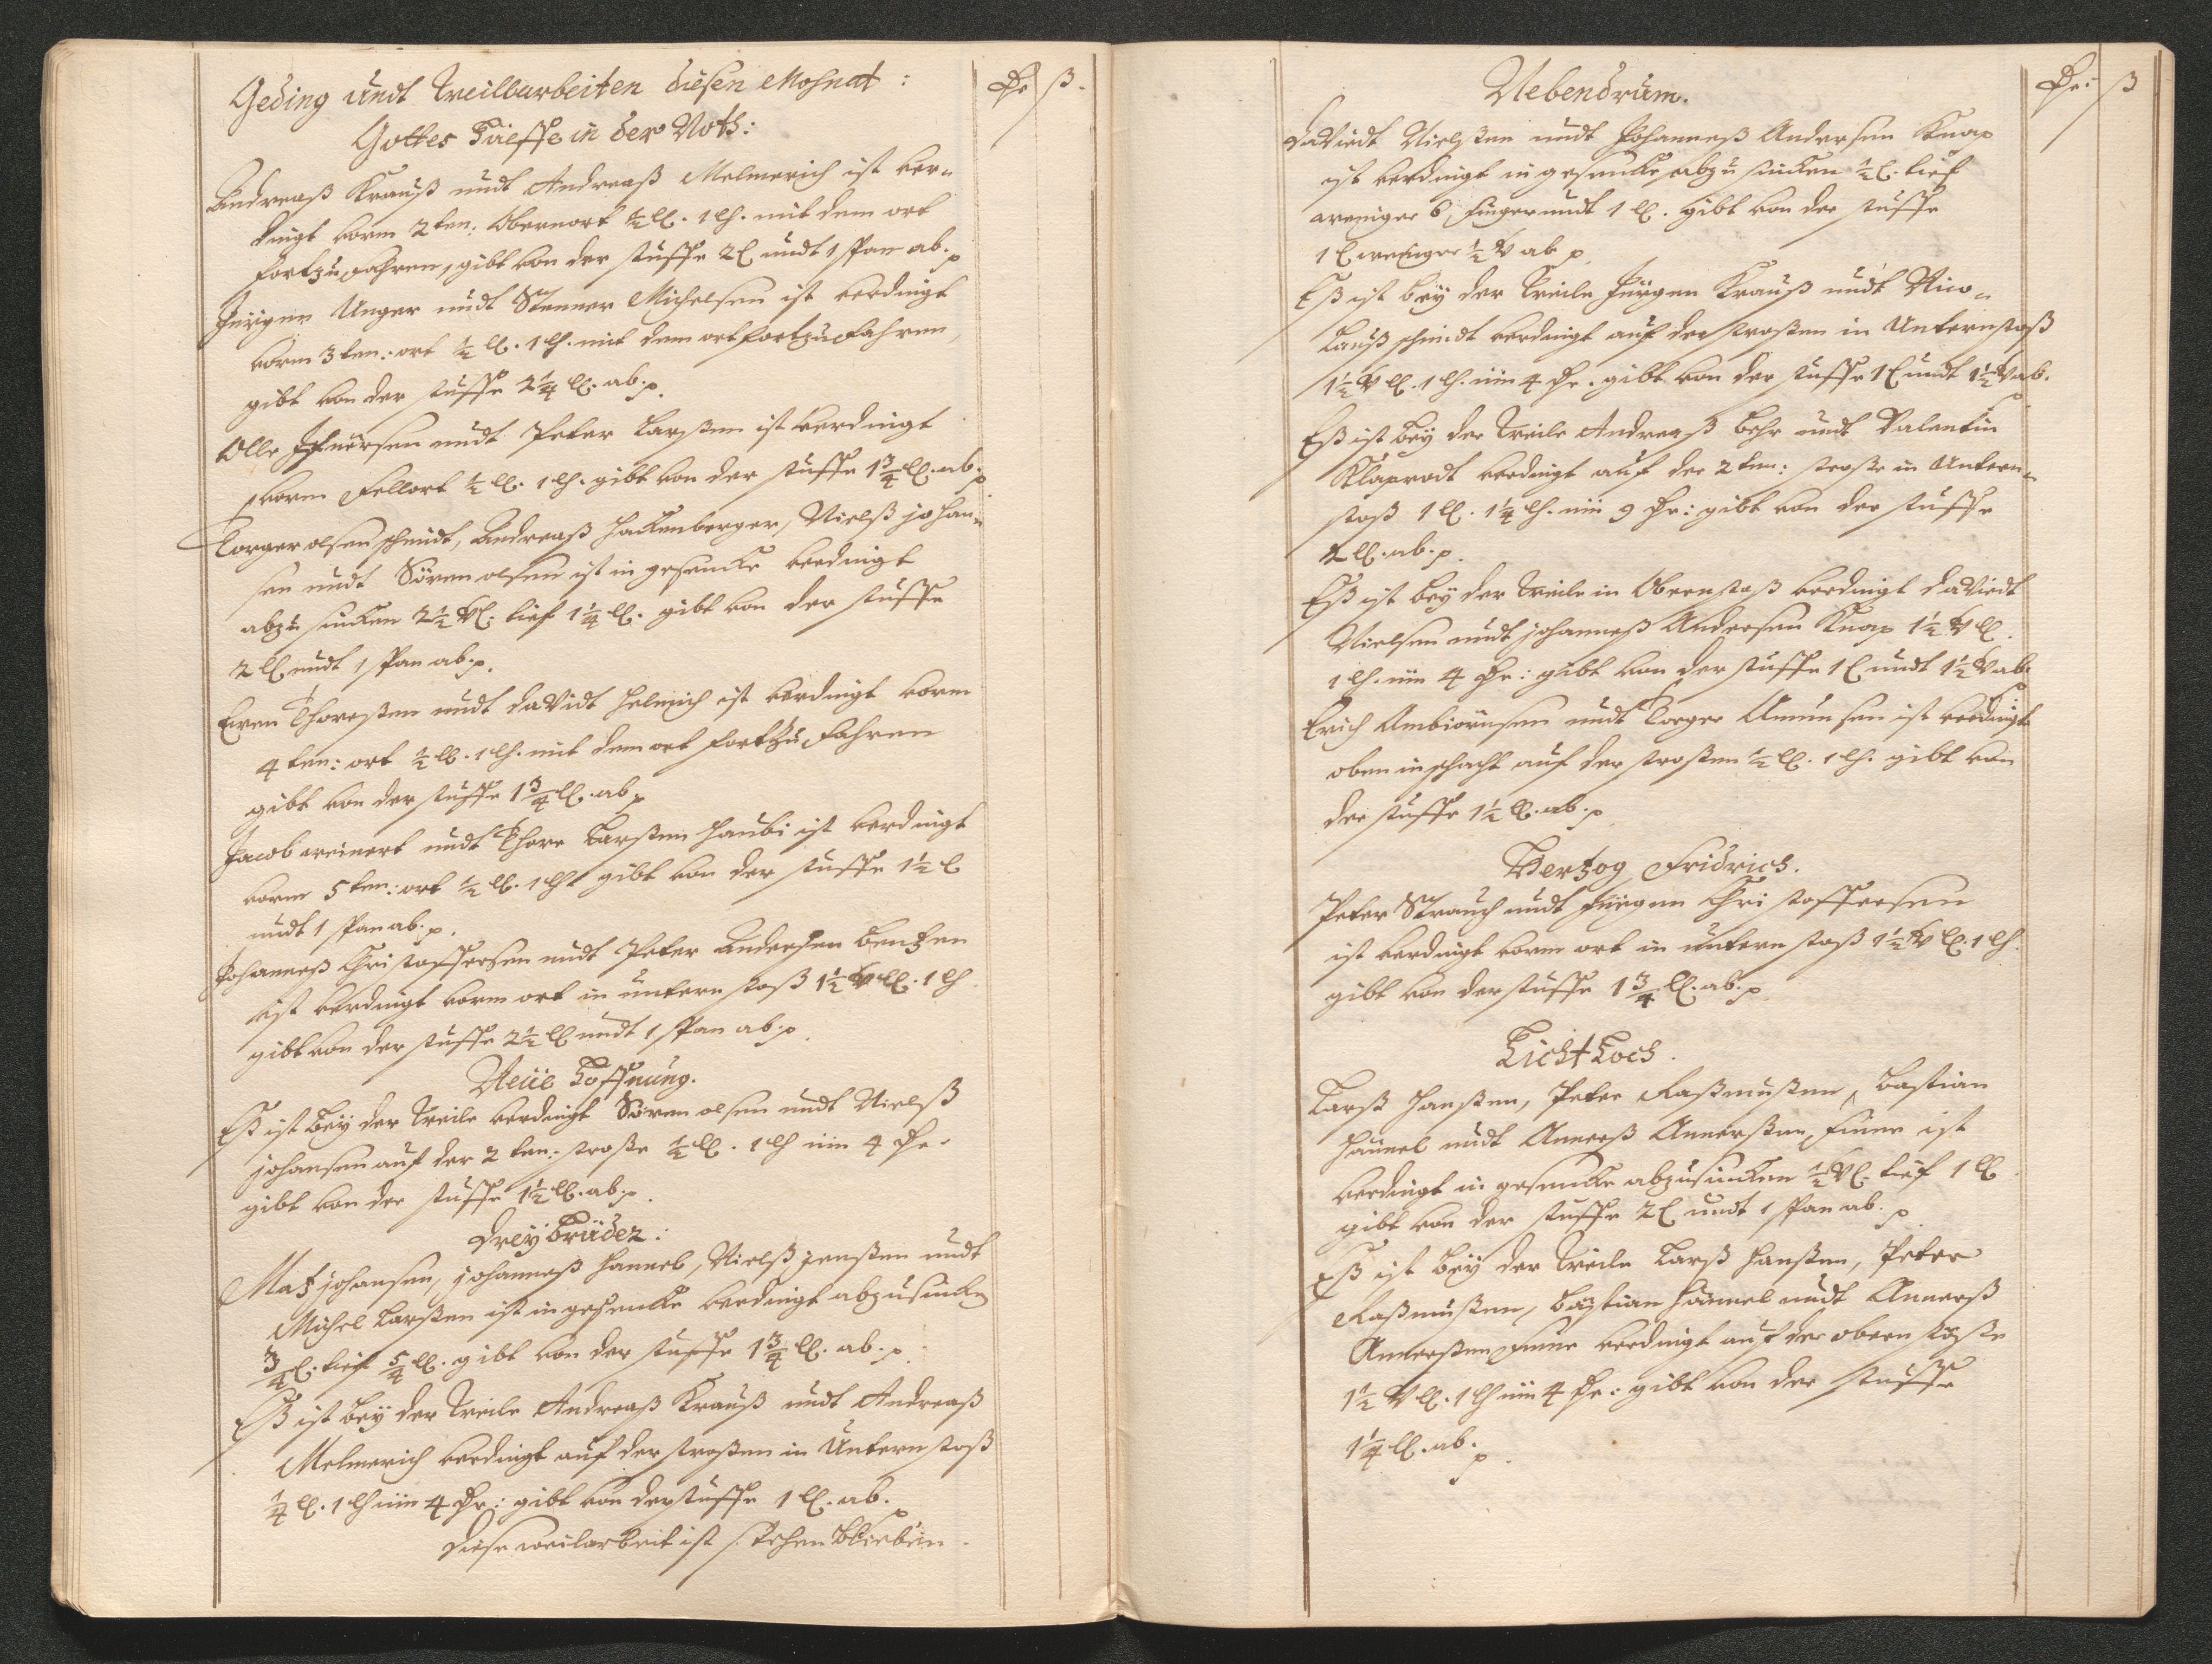 Geding undt Weillarbeiten diesen Mohnat:
Gottes Hüelffe in der Noth:
Rdr ß.
Andreaß Krauß undt Andreaß Melmerich ist ver-
dingt vorm 2ten: Obernort ½ ll. 1 lh. mit dem ort
fortzufahren, gibt von der stuffe 2 l undt 1 span ab. p
Jürgen Unger undt Stenner Michelsen ist verdingt
vorm 3ten: ort ½ ll. 1 lh. mit dem ort fortzufahren,
gibt von der stuffe 2¼ ll. ab. p.
Olle Ifversen undt Peter Larßen ist verdingt
vorm Fellort ½ ll. 1 lh. gibt von der stuffe 1¾ ll. ab. p.
Torger olsen schmidt, Andreaß Hackenberger, Nielß johan-
sen undt Sören olsen ist in gesencke verdingt
abzusincken 2½ l. tief 1¼ ll. gibt von der stuffe
2 ll undt 1 span ab. p.
Even Thoreßen undt david Helmich ist verdingt vorm
4ten: ort ½ ll. 1 lh. mit dem ort fortzufahren
gibt von der stuffe 1¾ ll. ab p
Jacob weinert undt Thore Larßen Haubi ist verdingt
vorm 5ten: ort ½ ll. 1 lh gibt von der stuffe 1½ l
undt 1 span ab. p.
Johanneß Christoffersen undt Peter Andersen bentzen
ist verdingt vorm ort in untern stoß 1½ ll. 1 lh
gibt von der stuffe 2½ ll undt 1 span ab. p.
Neüe Hoffnung.
Eß ist bey der Weile verdingt Sören olsen undt Nielß
johansen auf der 2ten: stroße ½ ll. 1 lh um 4 Rdr
gibt von der stuffe 1½ ll. ab. p.
Drey Brüder:
Matz johansen, johanneß Hannel, Nielß jenßen undt
Michel Larßen ist in gesencke verdingt abzusincken
¾ l. tief 5/4 ll. gibt von der stuffe 1¾ ll. ab. p.
Eß ist bey der Weile Andreaß Krauß undt Andreaß
Melmerich verdingt auf der stroßen in Untern stoß
½ ll. 1 lh um 4 Rdr: gibt von der stuffe 1 ll. ab. p
diese weilarbeit ist stehen blieben.
Nebendrum.
Rdr: ß
daviedt Nielßen undt Johanneß Andersen Knap
ist verdingt in gesencke abzusincken ½ l. tief
weniger 6 finger undt 1 ll. gibt von der stuffe
1 l weniger ½ ab p.
Eß ist bey der Weile Jürgen Krauß undt Nico-
lauß schmidt verdingt auf der stroßen in Untern stoß
1½ ll. 1 lh. um 4 Rdr. gibt von der stuffe 1 l undt 1½ ab.
Eß ist bey der Weile Andreaß behr undt Valentin
Klaprodt verdingt auf der 2ten: stroße in Untern-
stoß 1 ll. 1¼ lh. um 9 Rdr: gibt von der stuffe
2 ll. ab. p.
Eß ist bey der Weile in Obern stoß verdingt daviedt
Nielsen undt johanneß Andersen Knap 1½ ll.
1 lh. um 4 Rdr: gibt von der stuffe 1 l undt 1½ ab. p
Erich Ambiörnsen undt Torger Amunsen ist verdingt
oben in schacht auf der stroßen ½ ll. 1 lh. gibt von
der stuffe 1½ ll. ab. p
Hertzog Fridrich.
Peter Strauch undt Jürgen Christoffersen
ist verdingt vorm ort in untern stoß 1½ ll. 1 lh.
gibt von der stuffe 1¾ ll. ab. p.
Lichtloch.
Larß Hanßen, Peter Raßmußen, bastian
Hannel undt Annerß Annerßen Finne ist
verdingt in gesencke abzusincken ½ l. tief 1 ll
gibt von der stuffe 2 l undt 1 span ab. p.
Eß ist bey der Weile Larß Hanßen, Peter
Raßmußen, bastian Hannel undt Annerß
Annerßen Finne verdingt auf der obern stroße
1½ ll. 1 lh um 4 Rdr: gibt von der stuffe
1¼ ll. ab. p.